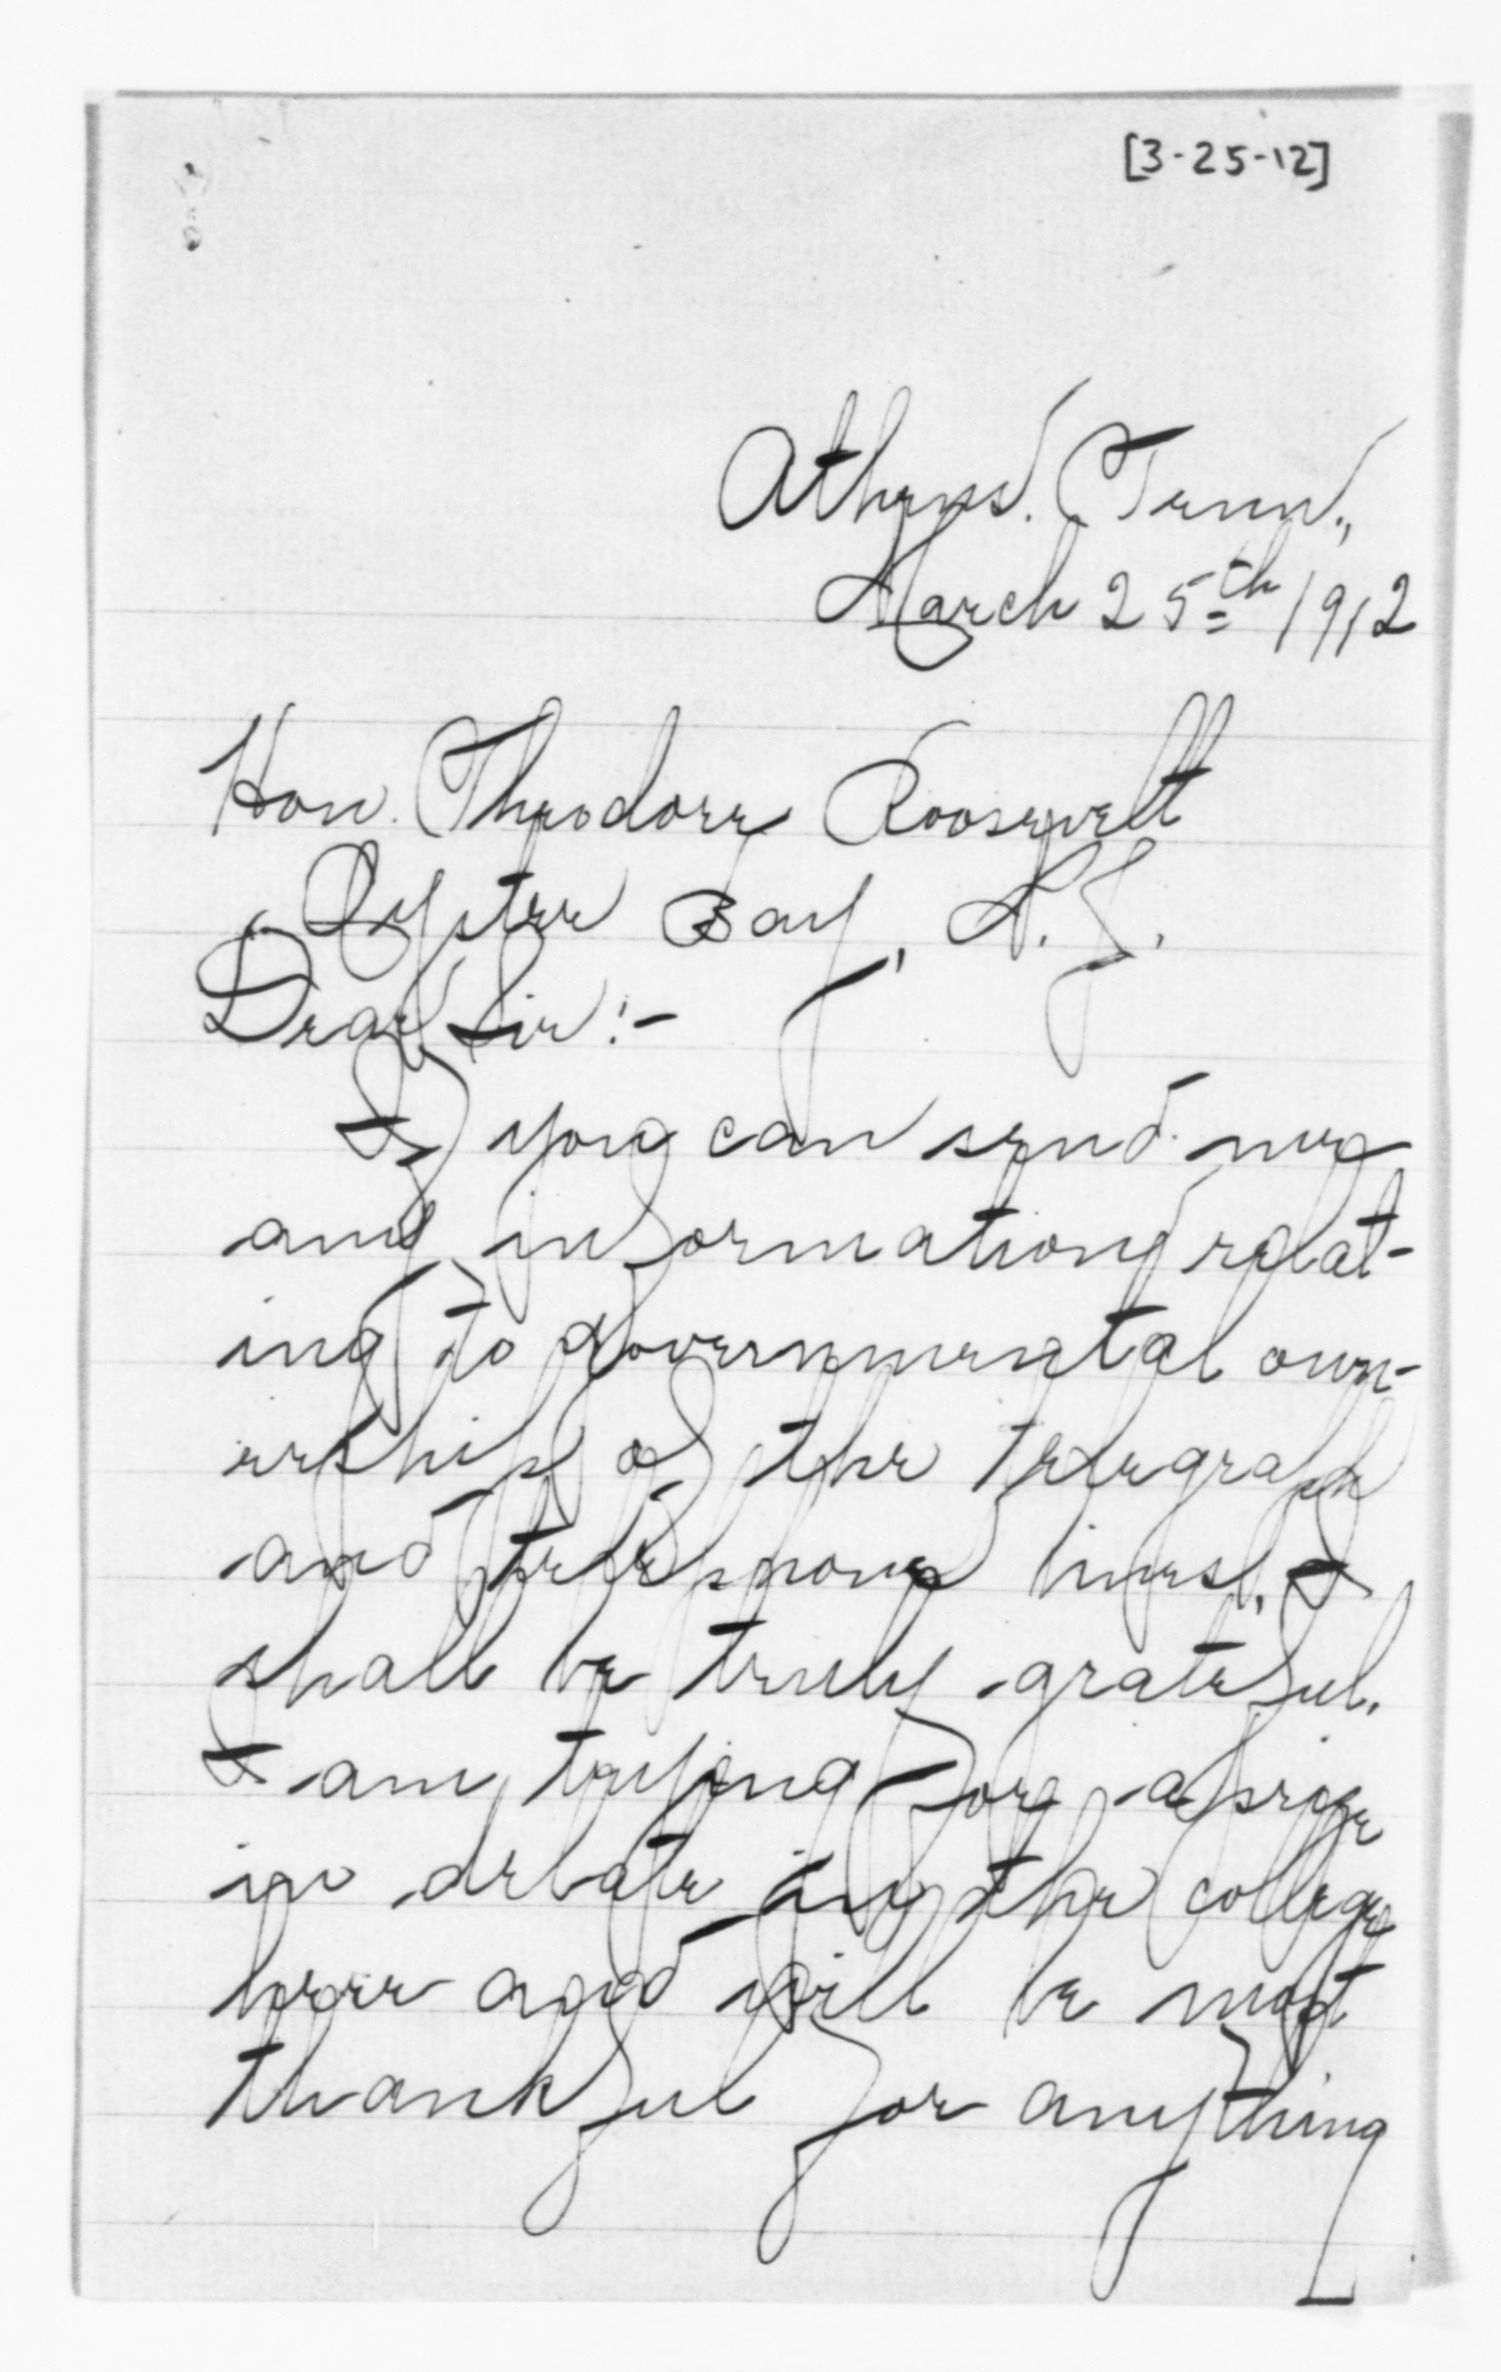 [3-25-12]
Athens. Tenn.,
March 25th 1912
Hon. Theodore Roosevelt
Oyster Bay, N.Y.
Dear Sir:-
If you can send me
any information relat-
ing to governmental own-
ership of the telegraph
and telephone lines, I
shall be truly grateful.
I am trying for a prize
in debate in the college
here and will be most
thankful for anything